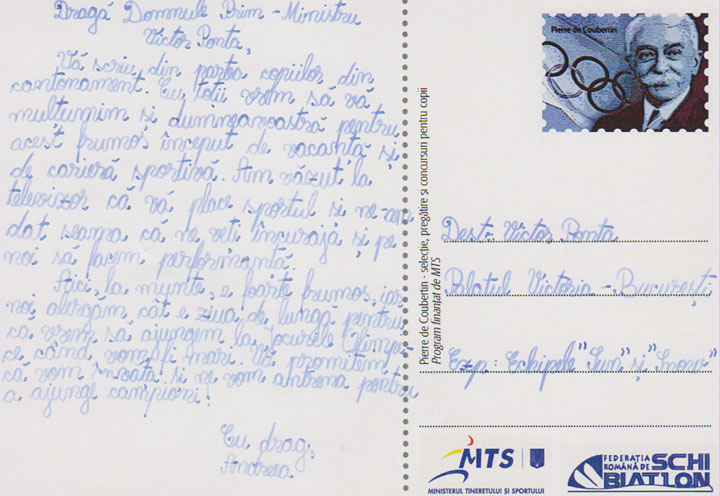 Dragă Domnule Prim-Ministru
Victor Ponta,
Vă scriu din partea copiilor din
cantonament. Cu toții vrem să vă
mulțumim și dumneavoastră pentru
acest frumos început de vacanță și
de carieră sportivă. Am văzut la
televizor că vă place sportul și ne-am
dat seama că ne veți încuraja și pe
noi să facem performanță.
Aici, la munte, e foarte frumos, iar
noi, alergăm cât e ziua de lungă pentru
ca vrem să ajungem la Jocurile Olimpi-
ce când vom fi mari. Vă promitem
că vom învăța și ne vom antrena pentru
a ajunge campioni!
Cu drag,
Andreea.
Pierre de Coubertin
Pierre de Coubertin - selecție, pregătire și concursuri pentru copii
Program finanțat de MTS
Dest: Victor Ponta
Palatul Victoria - București
Exp: Echipele "Sun" și "Snow"
MTS
MINISTERUL TINERETULUI ȘI SPORTULUI
FEDERAȚIA
ROMÂNĂ DE SCHI
BIATLON